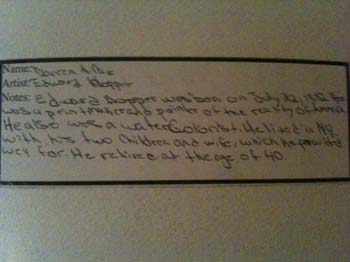 Name: Darren
Artist: Edward Hopper
Notes: Edward Hopper was born on July 22,
was a printmaker and painter of the reality of America
He also was a watercolorist. He lived in
with his two children and wife, which he provided
wey for. He retired at the age of 40.